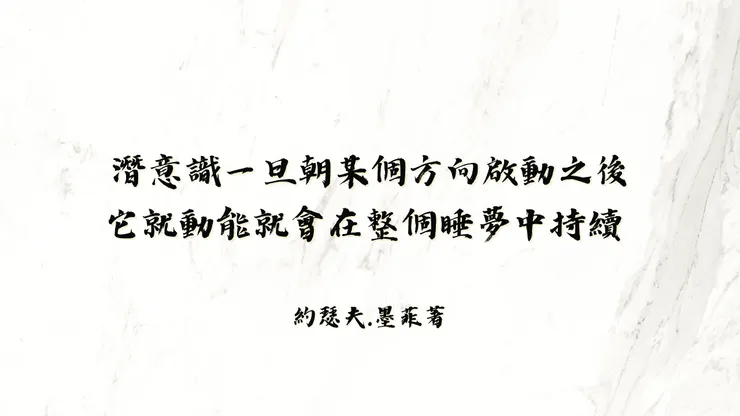 潛意識一旦朝某個方向啟動之後
它就動能就會在整個睡夢中持續
約瑟夫.墨菲著